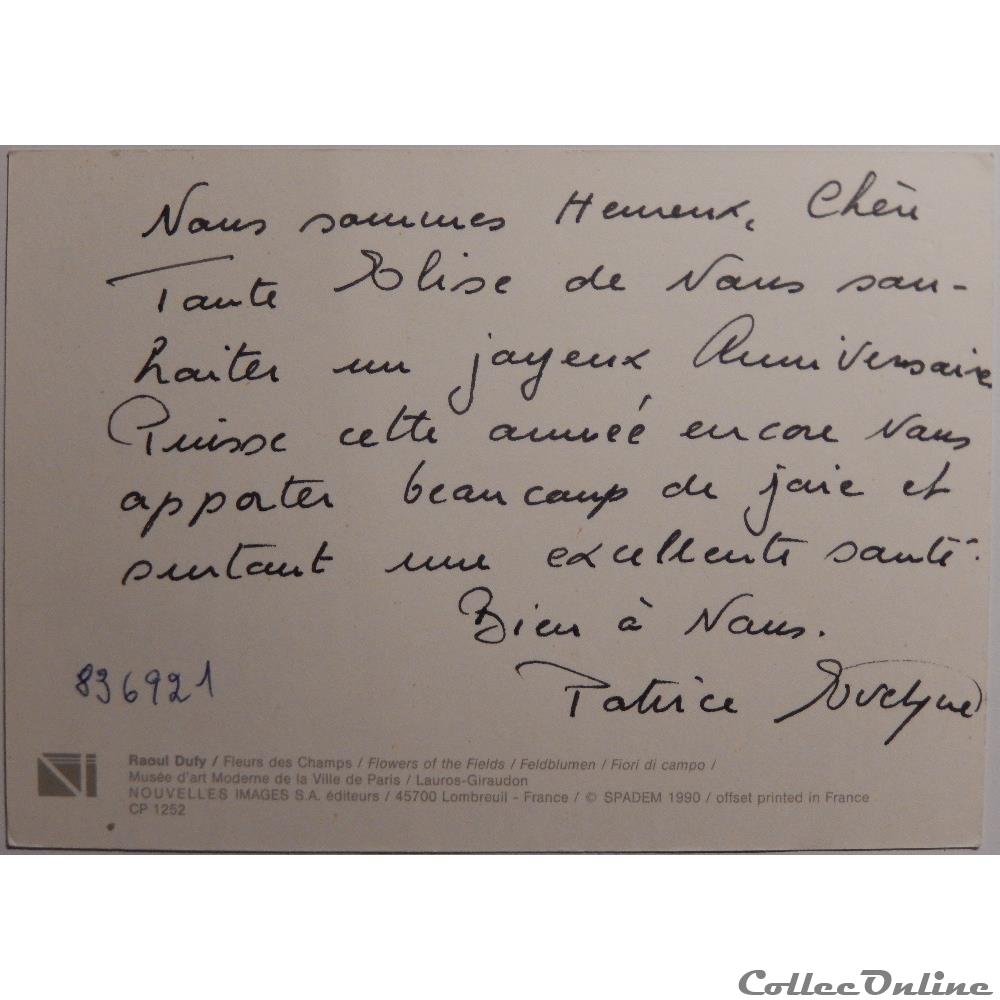 Nous sommes Heureux, Chère
Tante Elise de Vous sou-
haiter un joyeux Anniversaire
Puisse cette année encore Vous
apporter beaucoup de joie et
surtout une excellente santé.
Bien à Vous.
Patrice Evelyne
836921
Raoul Dufy / Fleurs des Champs / Flowers of the Fields / Feldblumen / Fiori di campo /
Musée d'art Moderne de la Ville de Paris / Lauros-Giraudon
NOUVELLES IMAGES S.A. éditeurs / 45700 Lombreuil - France / © SPADEM 1990 / offset printed in France
CP 1252
CollecOnline